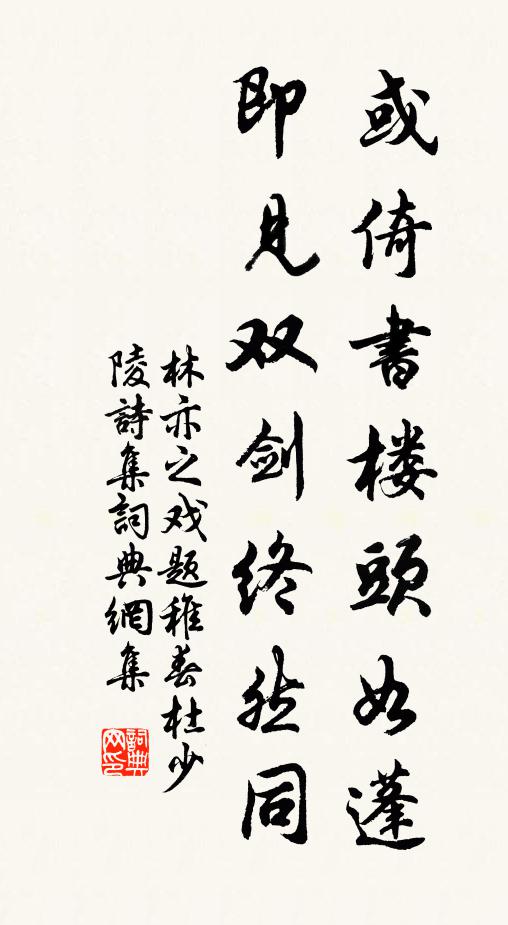 或倚書楼頭如蓬
即見双剑终然同
林亦之戏题稚春杜少
陵詩集詞典網集
詞典网印